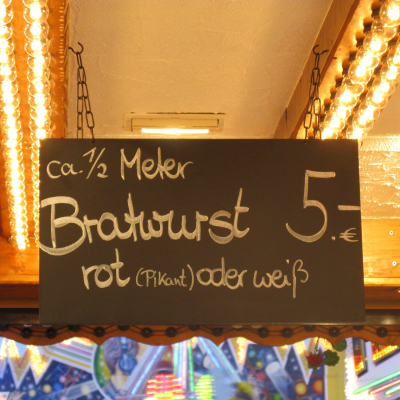 ca. ½ Meter
Bratwurst 5.- €
rot (Pikant) oder weiß